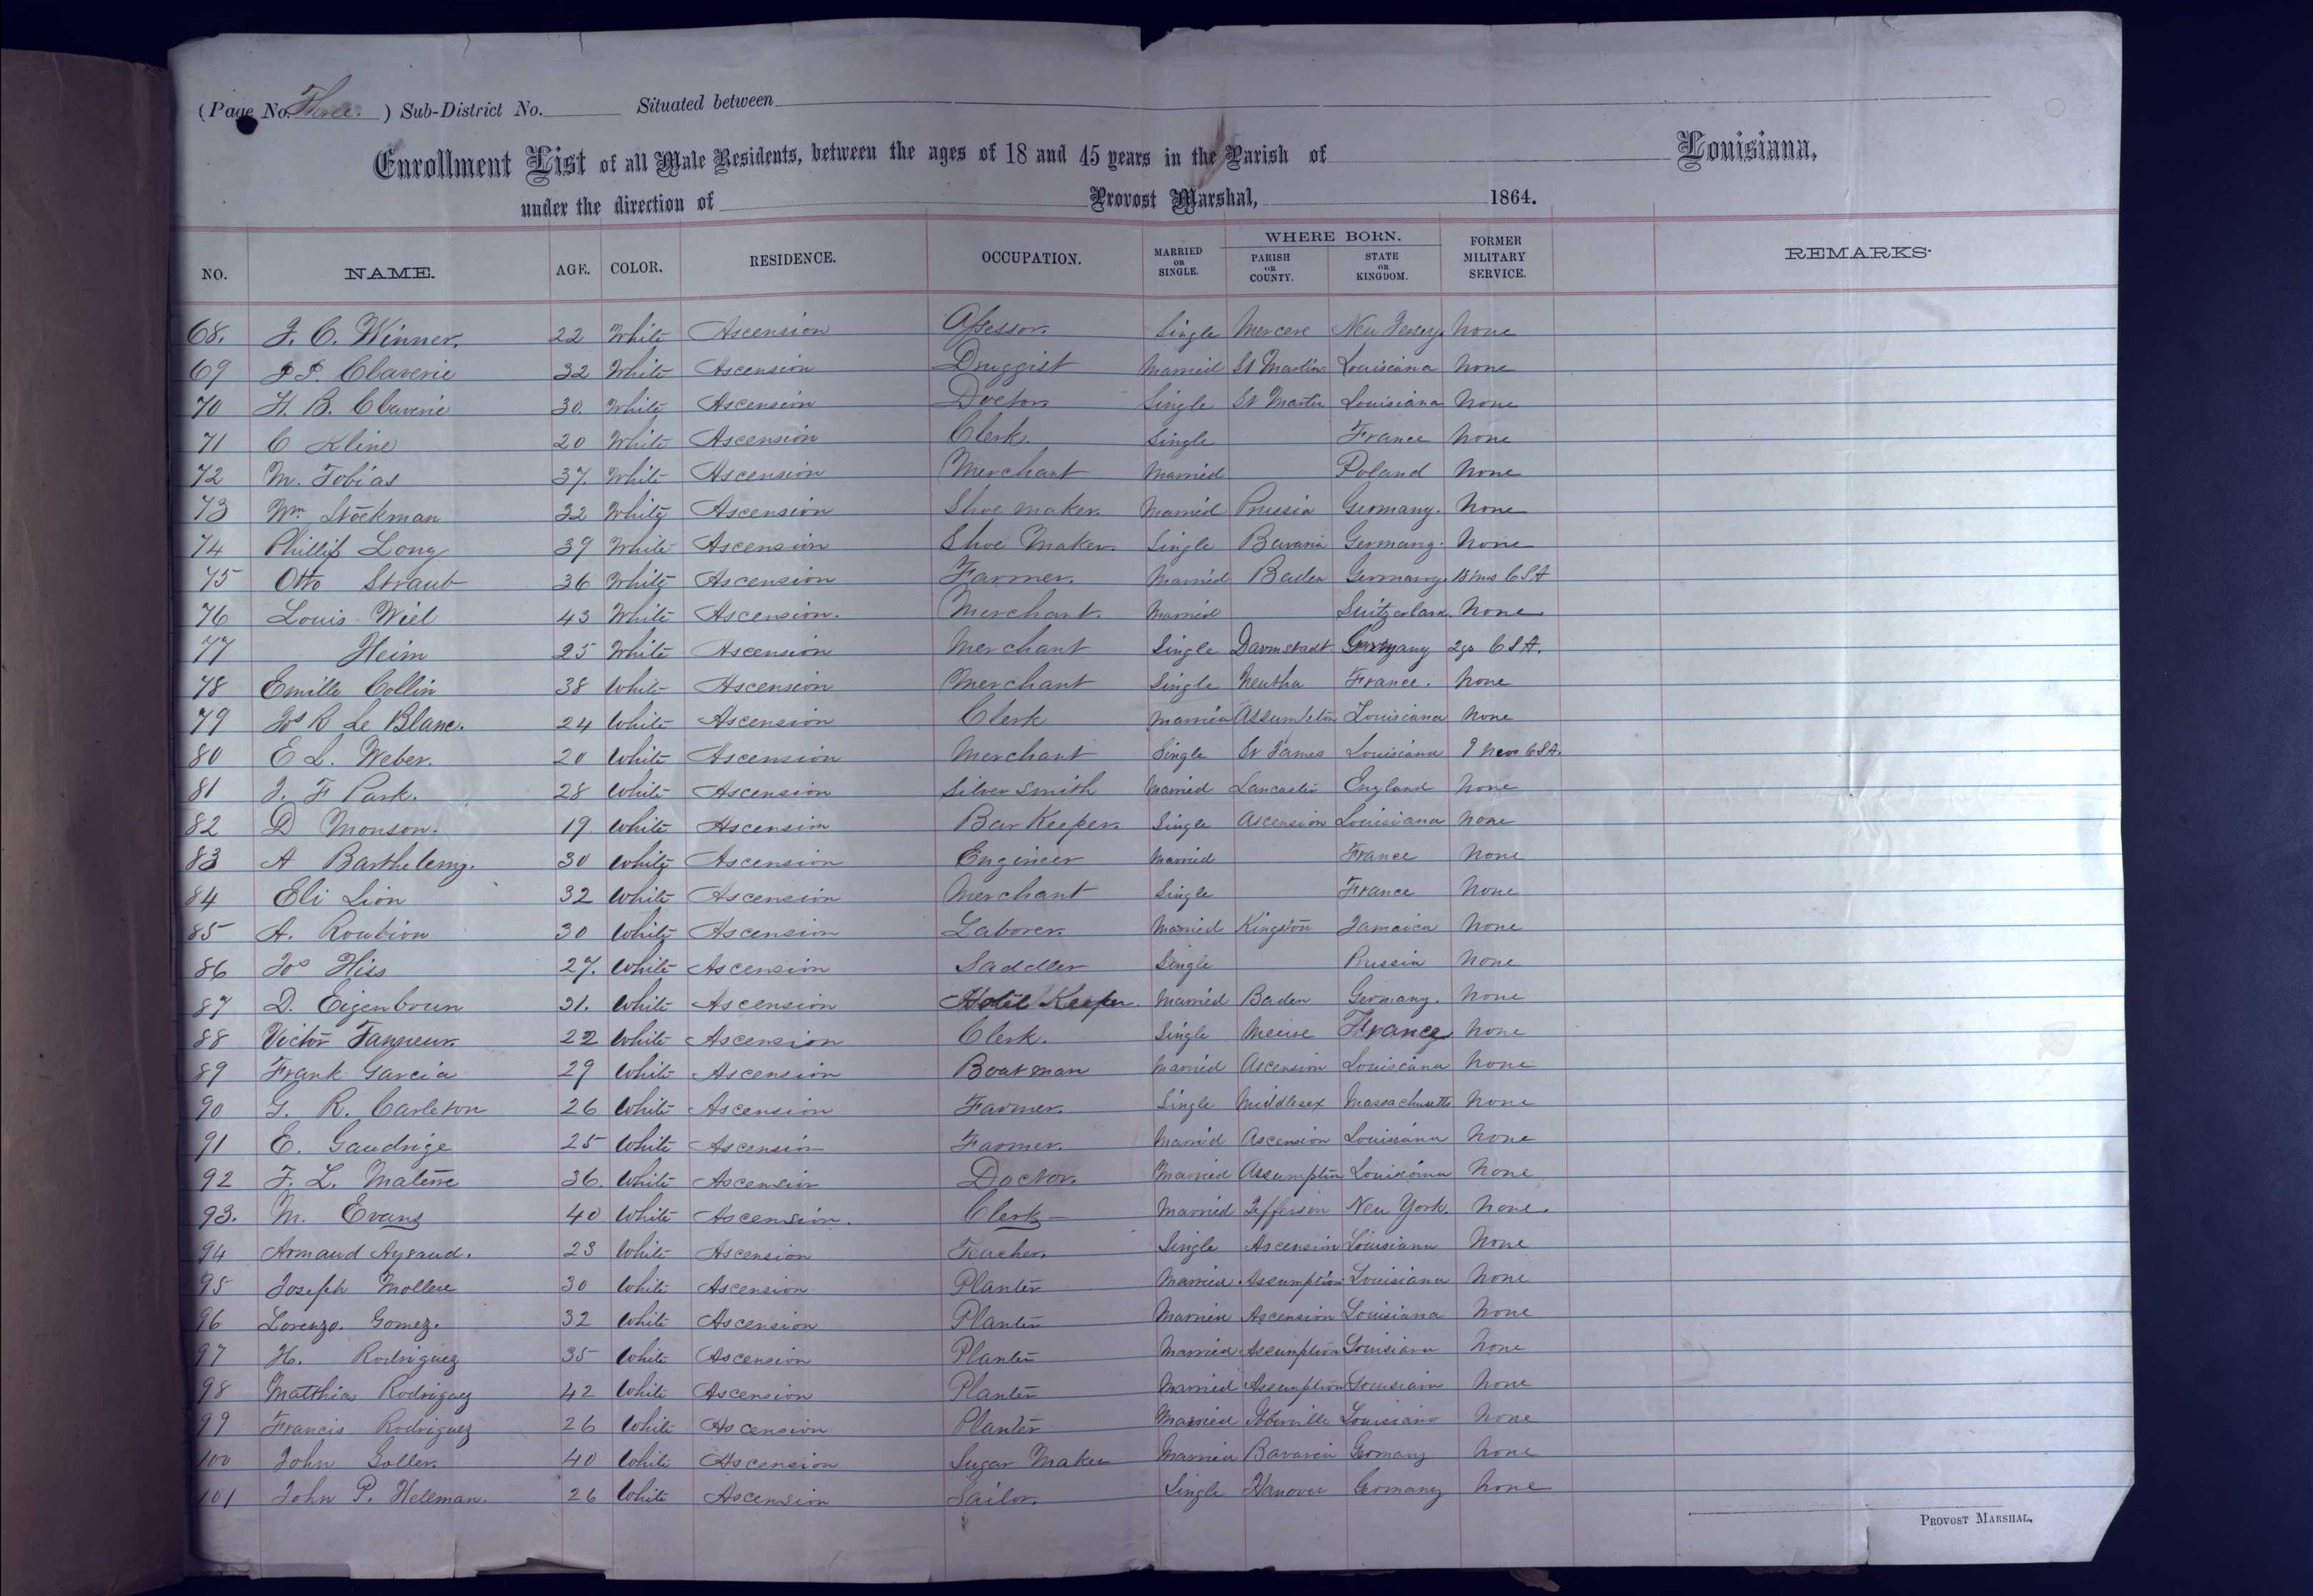 (Page No. Three. ) Sub-District No. Situated between
Enrollment List of all Male Residents, between the ages of 18 and 45 years in the Parish of Louisiana,
under the direction of Provost Marshal, 1864.
NO. NAME. AGE. COLOR. RESIDENCE. OCCUPATION. MARRIED OR SINGLE. WHERE BORN. PARISH OR COUNTY. STATE OR KINGDOM. FORMER MILITARY SERVICE. REMARKS.
68. J. C. Winner. 22 White Ascension Assessor. Single Mercere New Jersey None
69 P. Claverie 32 White Ascension Druggist Married St Martin Louisiana None
70 H. B. Claverie 30. White Ascension Doctor Single St Martin Louisiana None
71 C Kline 20 White Ascension Clerk. Single France None
72 M. Tobias 37. White Ascension Merchant Married Poland None
73 Wm Stockman 32 White Ascension Shoe maker. Married Prussia Germany. None
74 Phillip Long 39 White Ascension Shoe Maker. Single Bavaria Germany. None
75 Otto Straub 36 White Ascension Farmer. Married Baden Germany. CSA
76 Louis Wiel 43 White Ascension. Merchant. Married Suitzerland. None
77 Heim 25 White Ascension Merchant Single Darmstadt Germany CSA.
78 Emille Collin 38 White Ascension Merchant Single France. None
79 Jos R Le Blanc. 24 White Ascension Clerk Married Assumption Louisiana None
80 E L. Weber. 20 White Ascension Merchant Single St James Louisiana CSA.
81 J. F Park. 28 White Ascension Silver smith Married Lancaster England None
82 D Monson. 19 White Ascension Bar Keeper. Single Ascension Louisiana None
83 A Barthelemy. 30 White Ascension Engineer Married France None
84 Eli Lion 32 White Ascension Merchant Single France None
85 A. Roubion 30 White Ascension Laborer. Married Kingston Jamaica None
86 Jos Hiss 27. White Ascension Saddler Single Prussia None
87 D. Eigenbrun 31. White Ascension Hotel Keeper. Married Baden Germany. None
88 Victor 22 White Ascension Clerk. Single Meuse France None
89 Frank Garcia 29 White Ascension Boatman Married Ascension Louisiana None
90 G. R. Carleton 26 White Ascension Farmer. Single Middlesex Massachusetts None
91 E. Gaudrige 25 White Ascension Farmer. Married Ascension Louisiana None
92 F. L. 36. White Ascension Doctor. Married Assumption Louisiana None
93. M. Evans 40 White Ascension. Clerk Married Jefferson New York. None.
94 Armand Ayraud. 23 White Ascension Teacher. Single Ascension Louisiana None
95 Joseph Mollere 30 White Ascension Planter Married Assumption Louisiana None
96 Lorenzo. Gomez. 32 White Ascension Planter Married Ascension Louisiana None
97 H. Rodriguez 35 White Ascension Planter Married Assumption Louisiana None
98 Matthia Rodriguez 42 White Ascension Planter Married Assumption Louisiana None
99 Francis Rodriguez 26 White Ascension Planter Married Iberville Louisiana None
100 John Soller. 40 White Ascension Sugar Maker Married Bavaria Germany None
101 John P. Hellman. 26 White Ascension Sailor. Single Hanover Germany None
PROVOST MARSHAL.